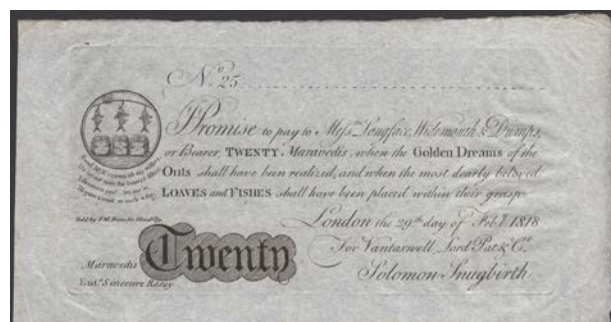 No. 25
I Promise to pay to Messrs. Longface, Widemouth & Dumps,
or Bearer, TWENTY Maravedis, when the Golden Dreams of the
Outs shall have been realized, and when the most dearly beloved
LOAVES and FISHES shall have been placed within their grasp.
Sold by
London the 29th day of Feby. 1818
For Vantarwell, Lord Pat & Co.
Twenty
Maravedis
Solomon Snugbirth
Sinecure